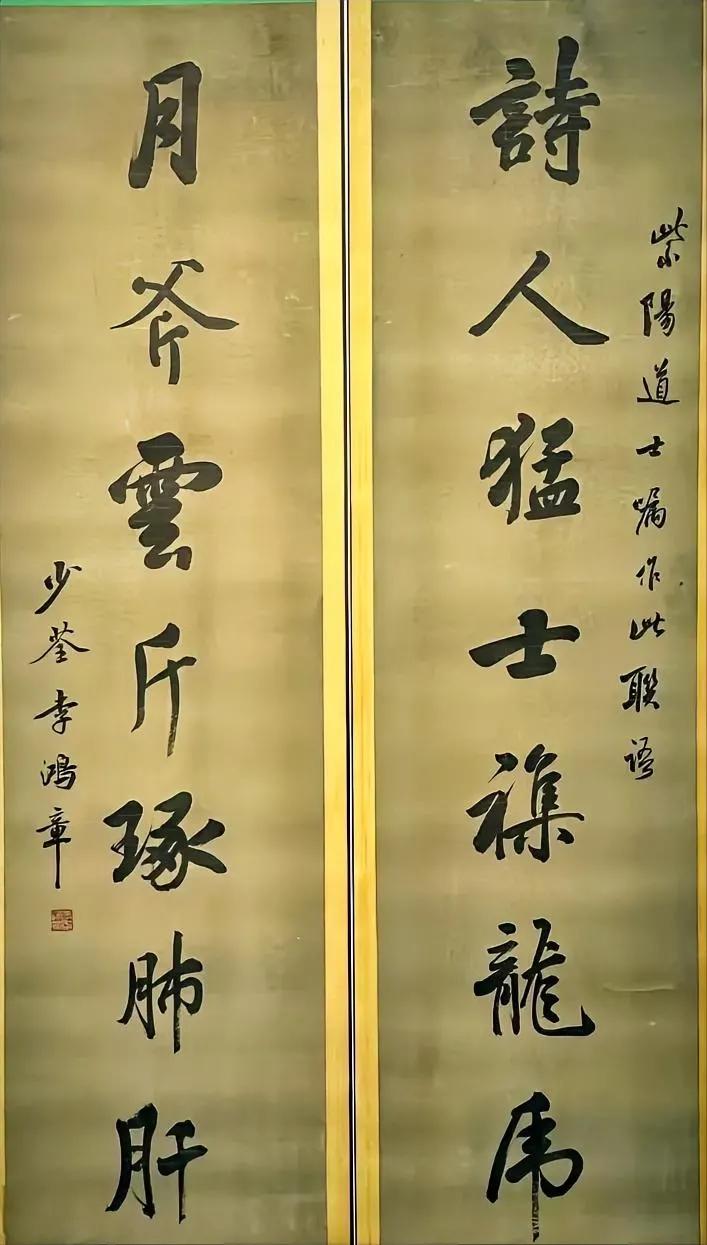 紫陽道士嘱作此聯語
詩人猛士襍龍虎
月斧雲斤琢肺肝
少荃李鴻章